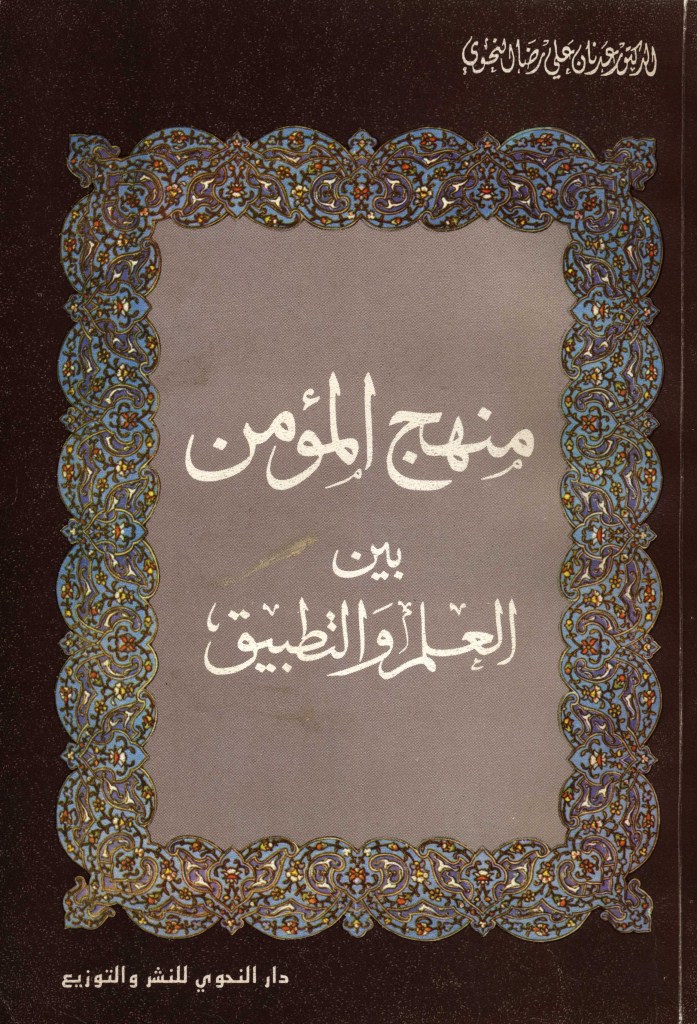 الدكتور عدنان علي رضا النحوي
منهج المؤمن
بين
العلم والتطبيق
دار النحوي للنشر والتوزيع